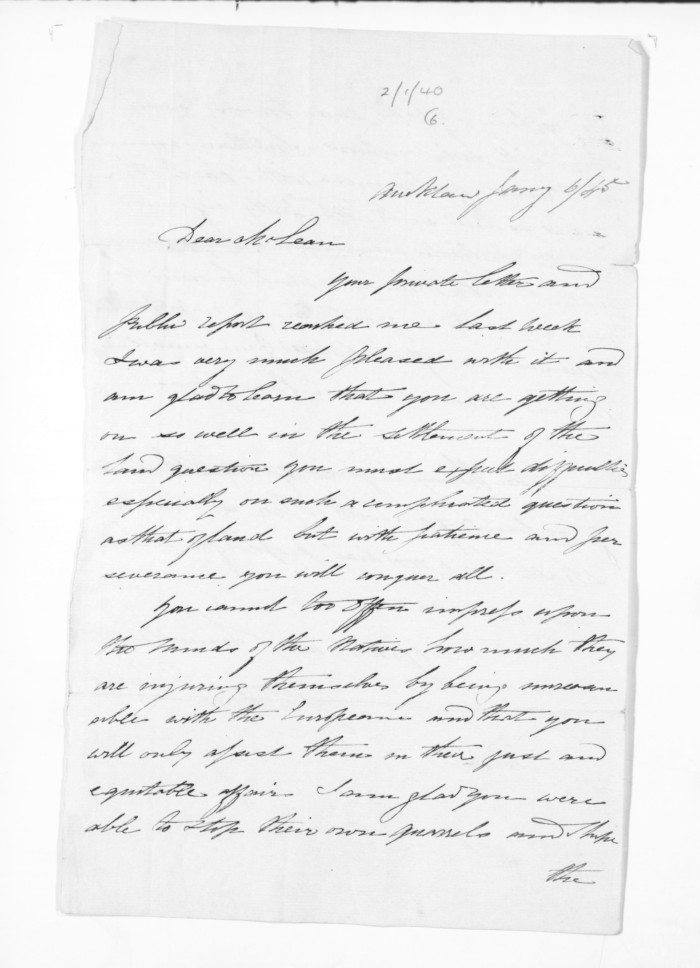 2/1/40
6.
Auckland Jany 6/45
Dear McLean
Your private letter and
public report reached me last week
I was very much pleased with it and
am glad to learn that you are getting
on so well in the settlement of the
land question you must expect difficulties
especially on such a complicated question
as that of land but with patience and per
severance you will conquer all.
You cannot too often impress upon
the minds of the Natives how much they
are injuring themselves by being
with the Europeans and that you
will only assist them in their just and
equitable affairs I am glad you were
able to stop their own quarrels and I hope
the